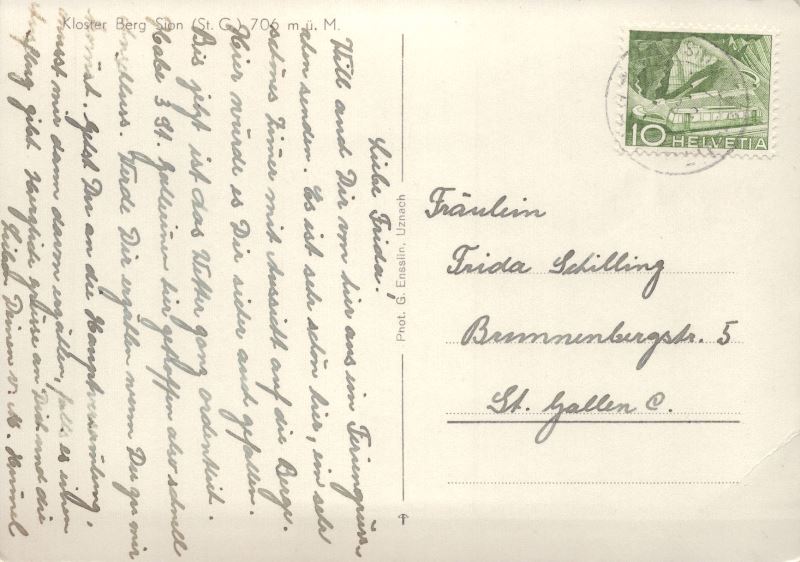 Kloster Berg Sion (St. G.) 706 m ü. M.
Liebe Frida!
Will auch Dir von hier aus ein Feriengruss
senden. Es ist sehr schön hier, ein sehr
schönes Zimmer mit Aussicht auf die Berge.
Hier würde es Dir sicher auch gefallen.
Bis jetzt ist das Wetter ganz ordentlich.
Habe 3 St. Gallerinnen hier getroffen also schnell
Anschluss. Werde Dir erzählen wenn Du zu mir
kommst. Gehst Du an die Hauptversammlung,
musst mir dann davon erzählen, falls es einen
Ausflug gibt. Herzliche Grüsse an Dich und die
Lieben Deinen v. M.
Phot. G. Ensslin, Uznach
10
HELVETIA
Fräulein
Frida Schilling
Brunnenbergstr. 5
St. Gallen C.